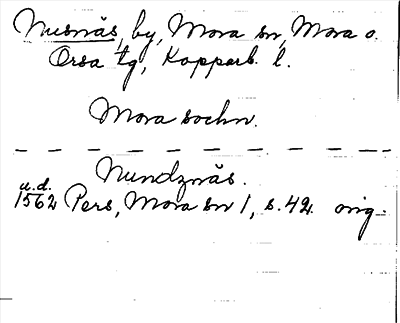 Nusnäs, by, Mora sn, Mora o.
Orsa tg, Kopparb. l.
Mora sockn.
Nundznäs.
u.d.
1562 Pers, Mora sn 1, s. 42. orig.